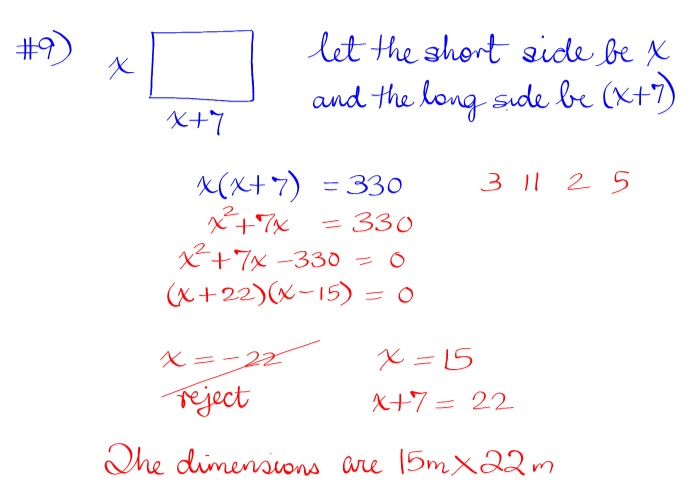 #9)
let the short side be x
and the long side be (x+7)
x
x+7
x(x+7) = 330
3 11 2 5
x²+7x = 330
x²+7x-330 = 0
(x+22)(x-15) = 0
x = -22
reject
x = 15
x+7 = 22
The dimensions are 15m x 22m